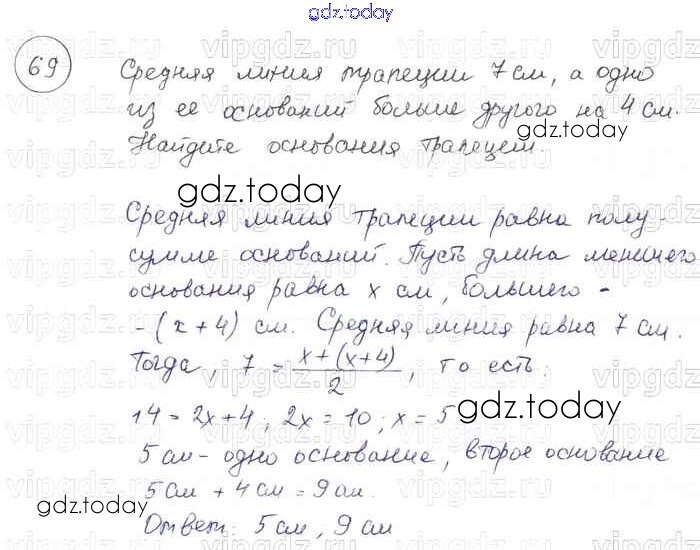 gdz.today
69
Средняя линия трапеции 7 см, а одно
из ее оснований больше другого на 4 см.
gdz.today
Найдите основания трапеции.
gdz.today
Средняя линия трапеции равна полу-
сумме оснований. Пусть длина меньшего
основания равна x см, большего -
- (x + 4) см. Средняя линия равна 7 см.
Тогда, 7 = (x + (x + 4))/2, то есть:
14 = 2x + 4; 2x = 10; x = 5
gdz.today
5 см - одно основание, второе основание
5 см + 4 см = 9 см.
gdz.today
Ответ: 5 см; 9 см